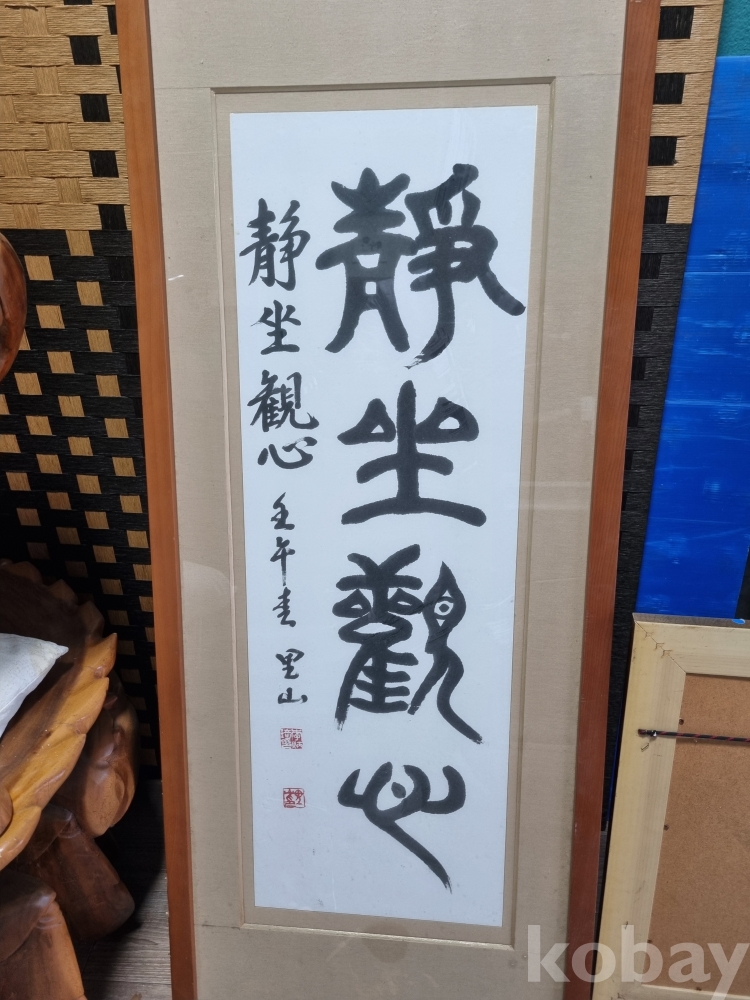 靜坐觀心
静坐観心 壬午春 里山
kobay